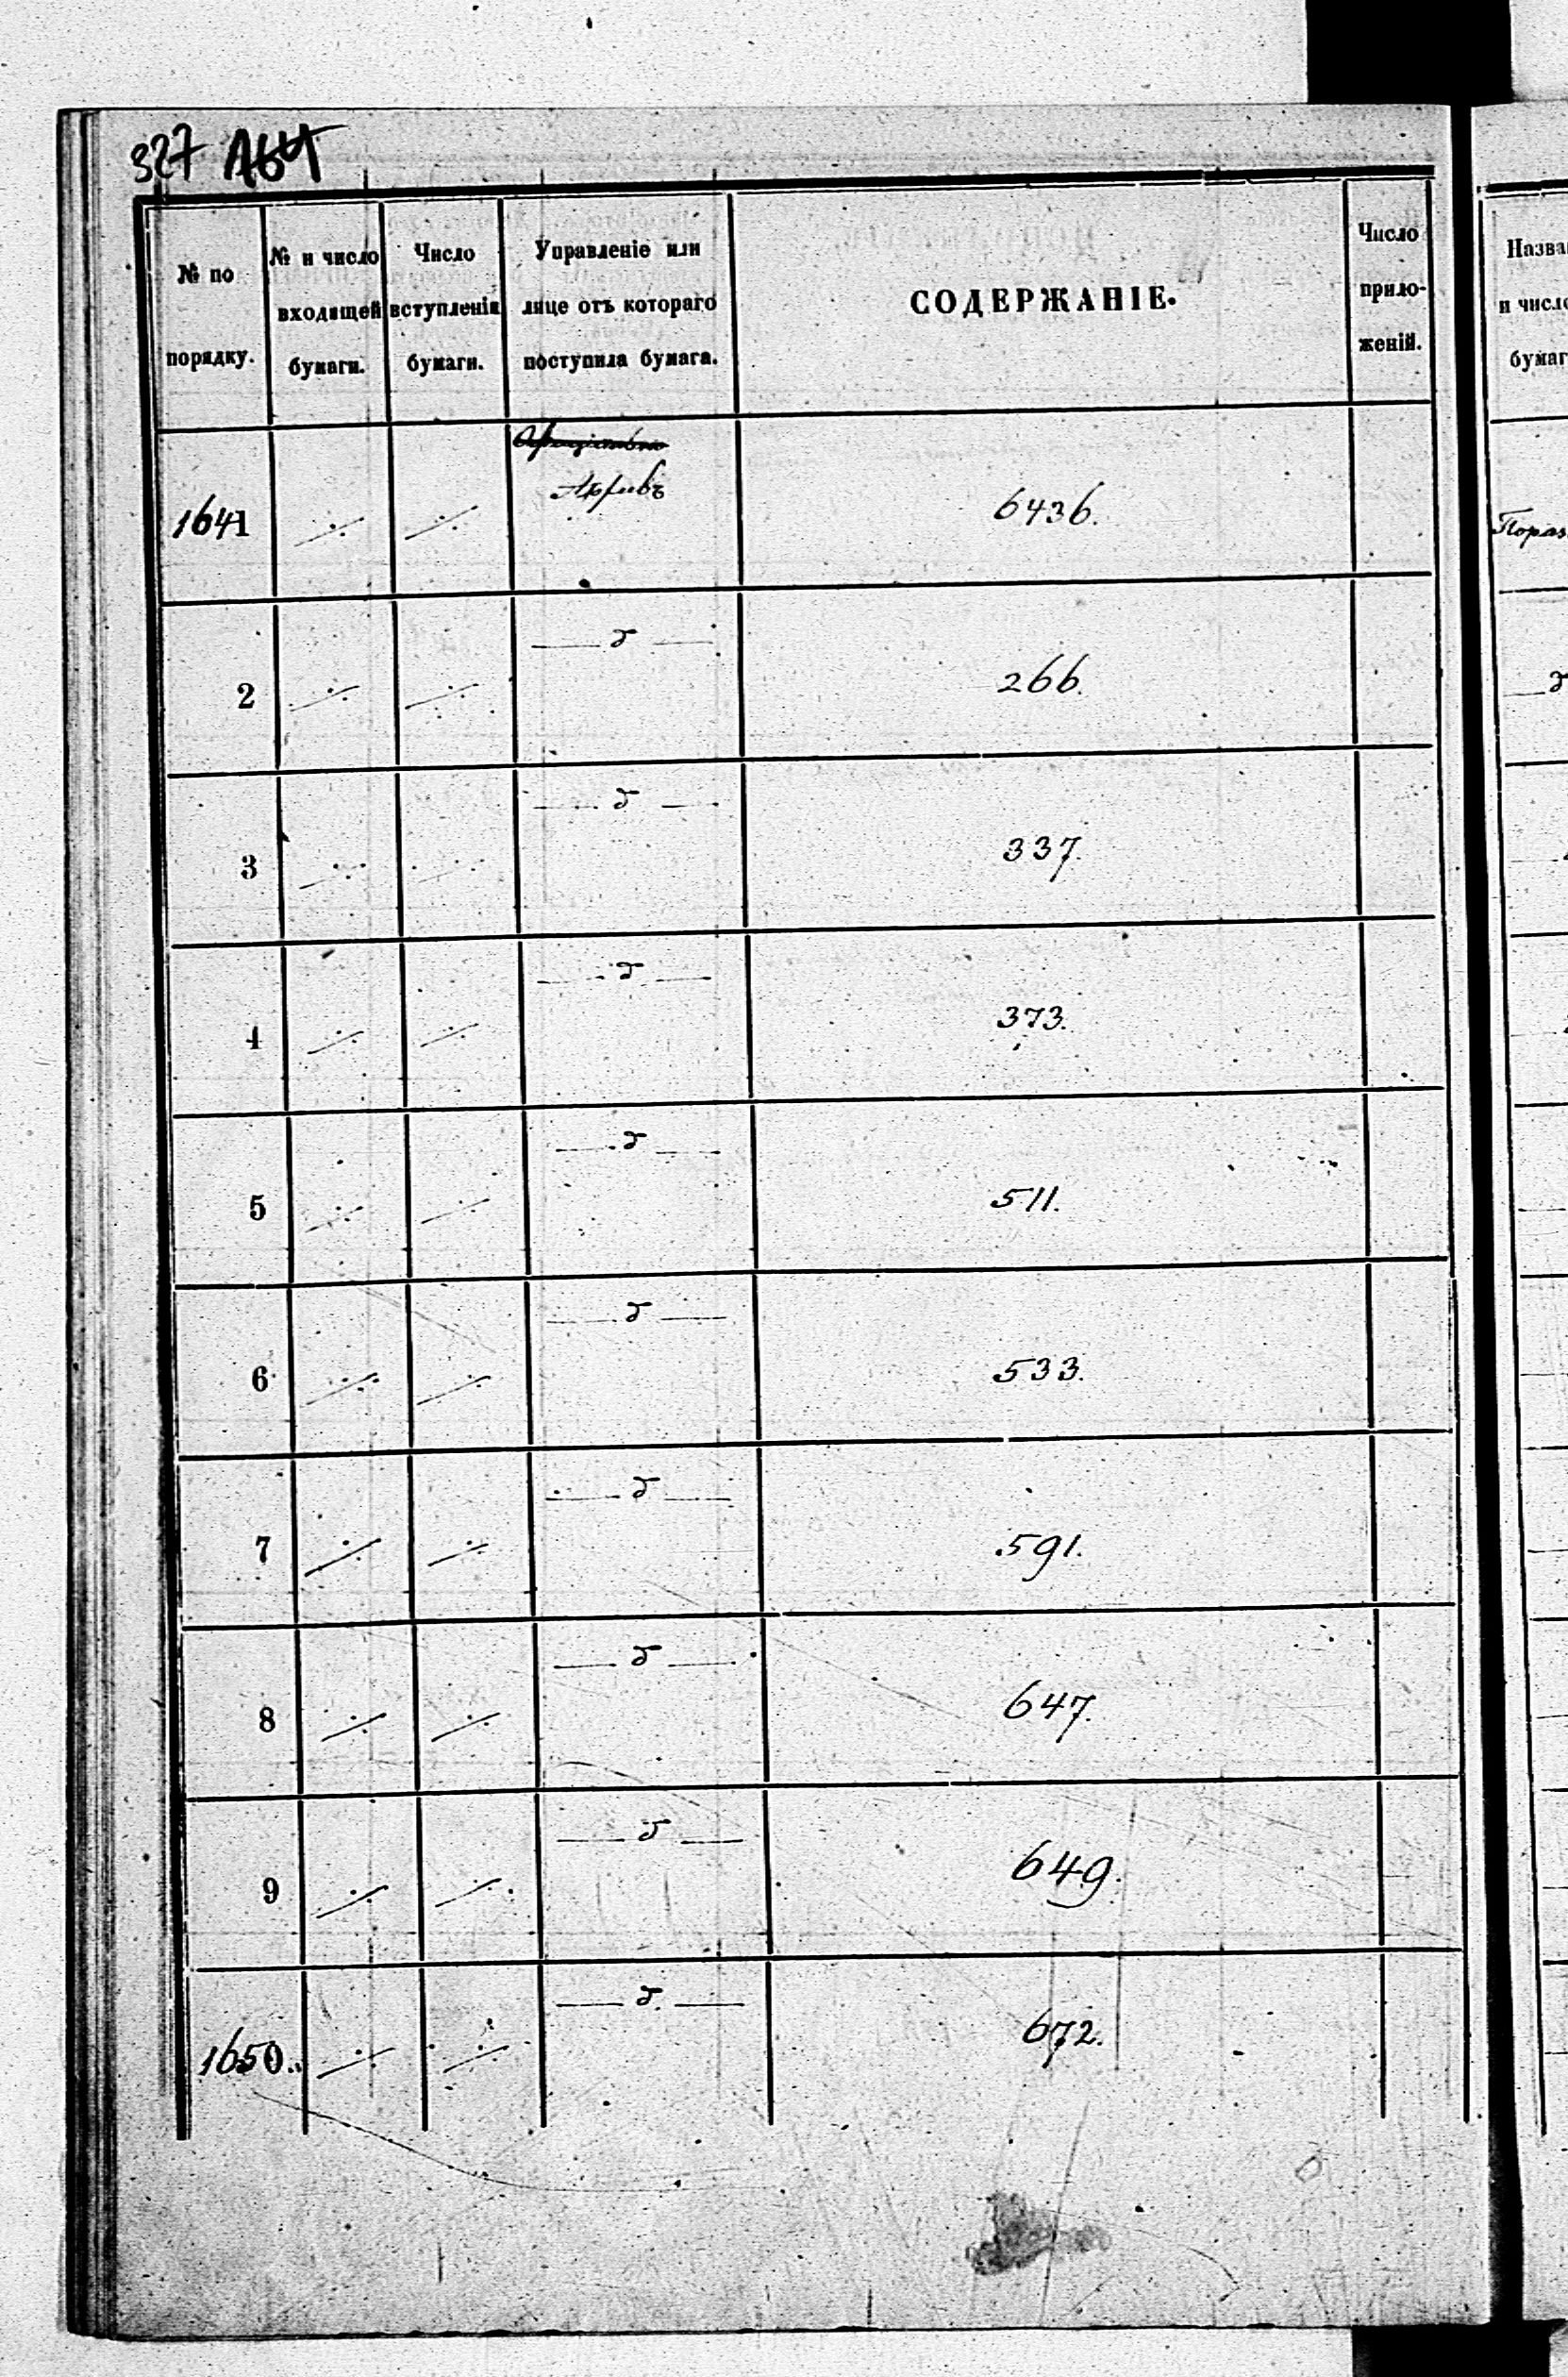 327
№ по порядку.
№ и число входящей бумаги.
Число вступленія бумаги.
Управленіе или лице отъ котораго поступила бумага.
СОДЕРЖАНІЕ.
Число приложеній.
1641 ·/· ·/· Архивъ 6436.
2 ·/· ·/· — д — 266.
3 ·/· ·/· — д — 337.
4 ·/· ·/· — д — 373.
5 ·/· ·/· — д — 511.
6 ·/· ·/· — д — 533.
7 ·/· ·/· — д — 591.
8 ·/· ·/· — д — 647.
9 ·/· ·/· — д — 649.
1650. ·/· ·/· — д — 672.